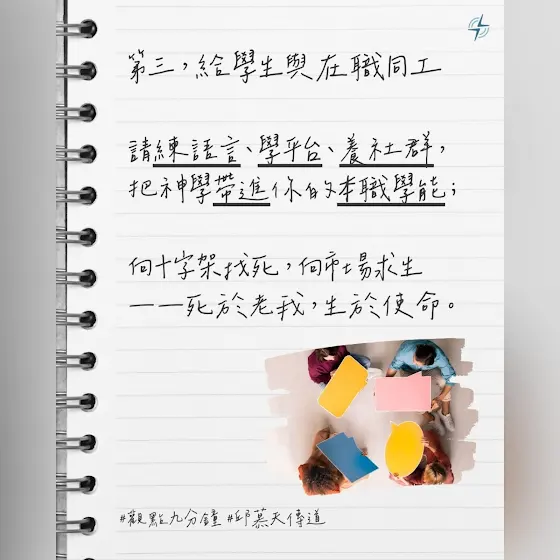 第三，給學生與在職同工
請練語言、學平台、養社群，
把神學帶進你的本職學能；
向十字架找死，向市場求生
——死於老我，生於使命。
#觀點九分鐘 #邱慕天傳道